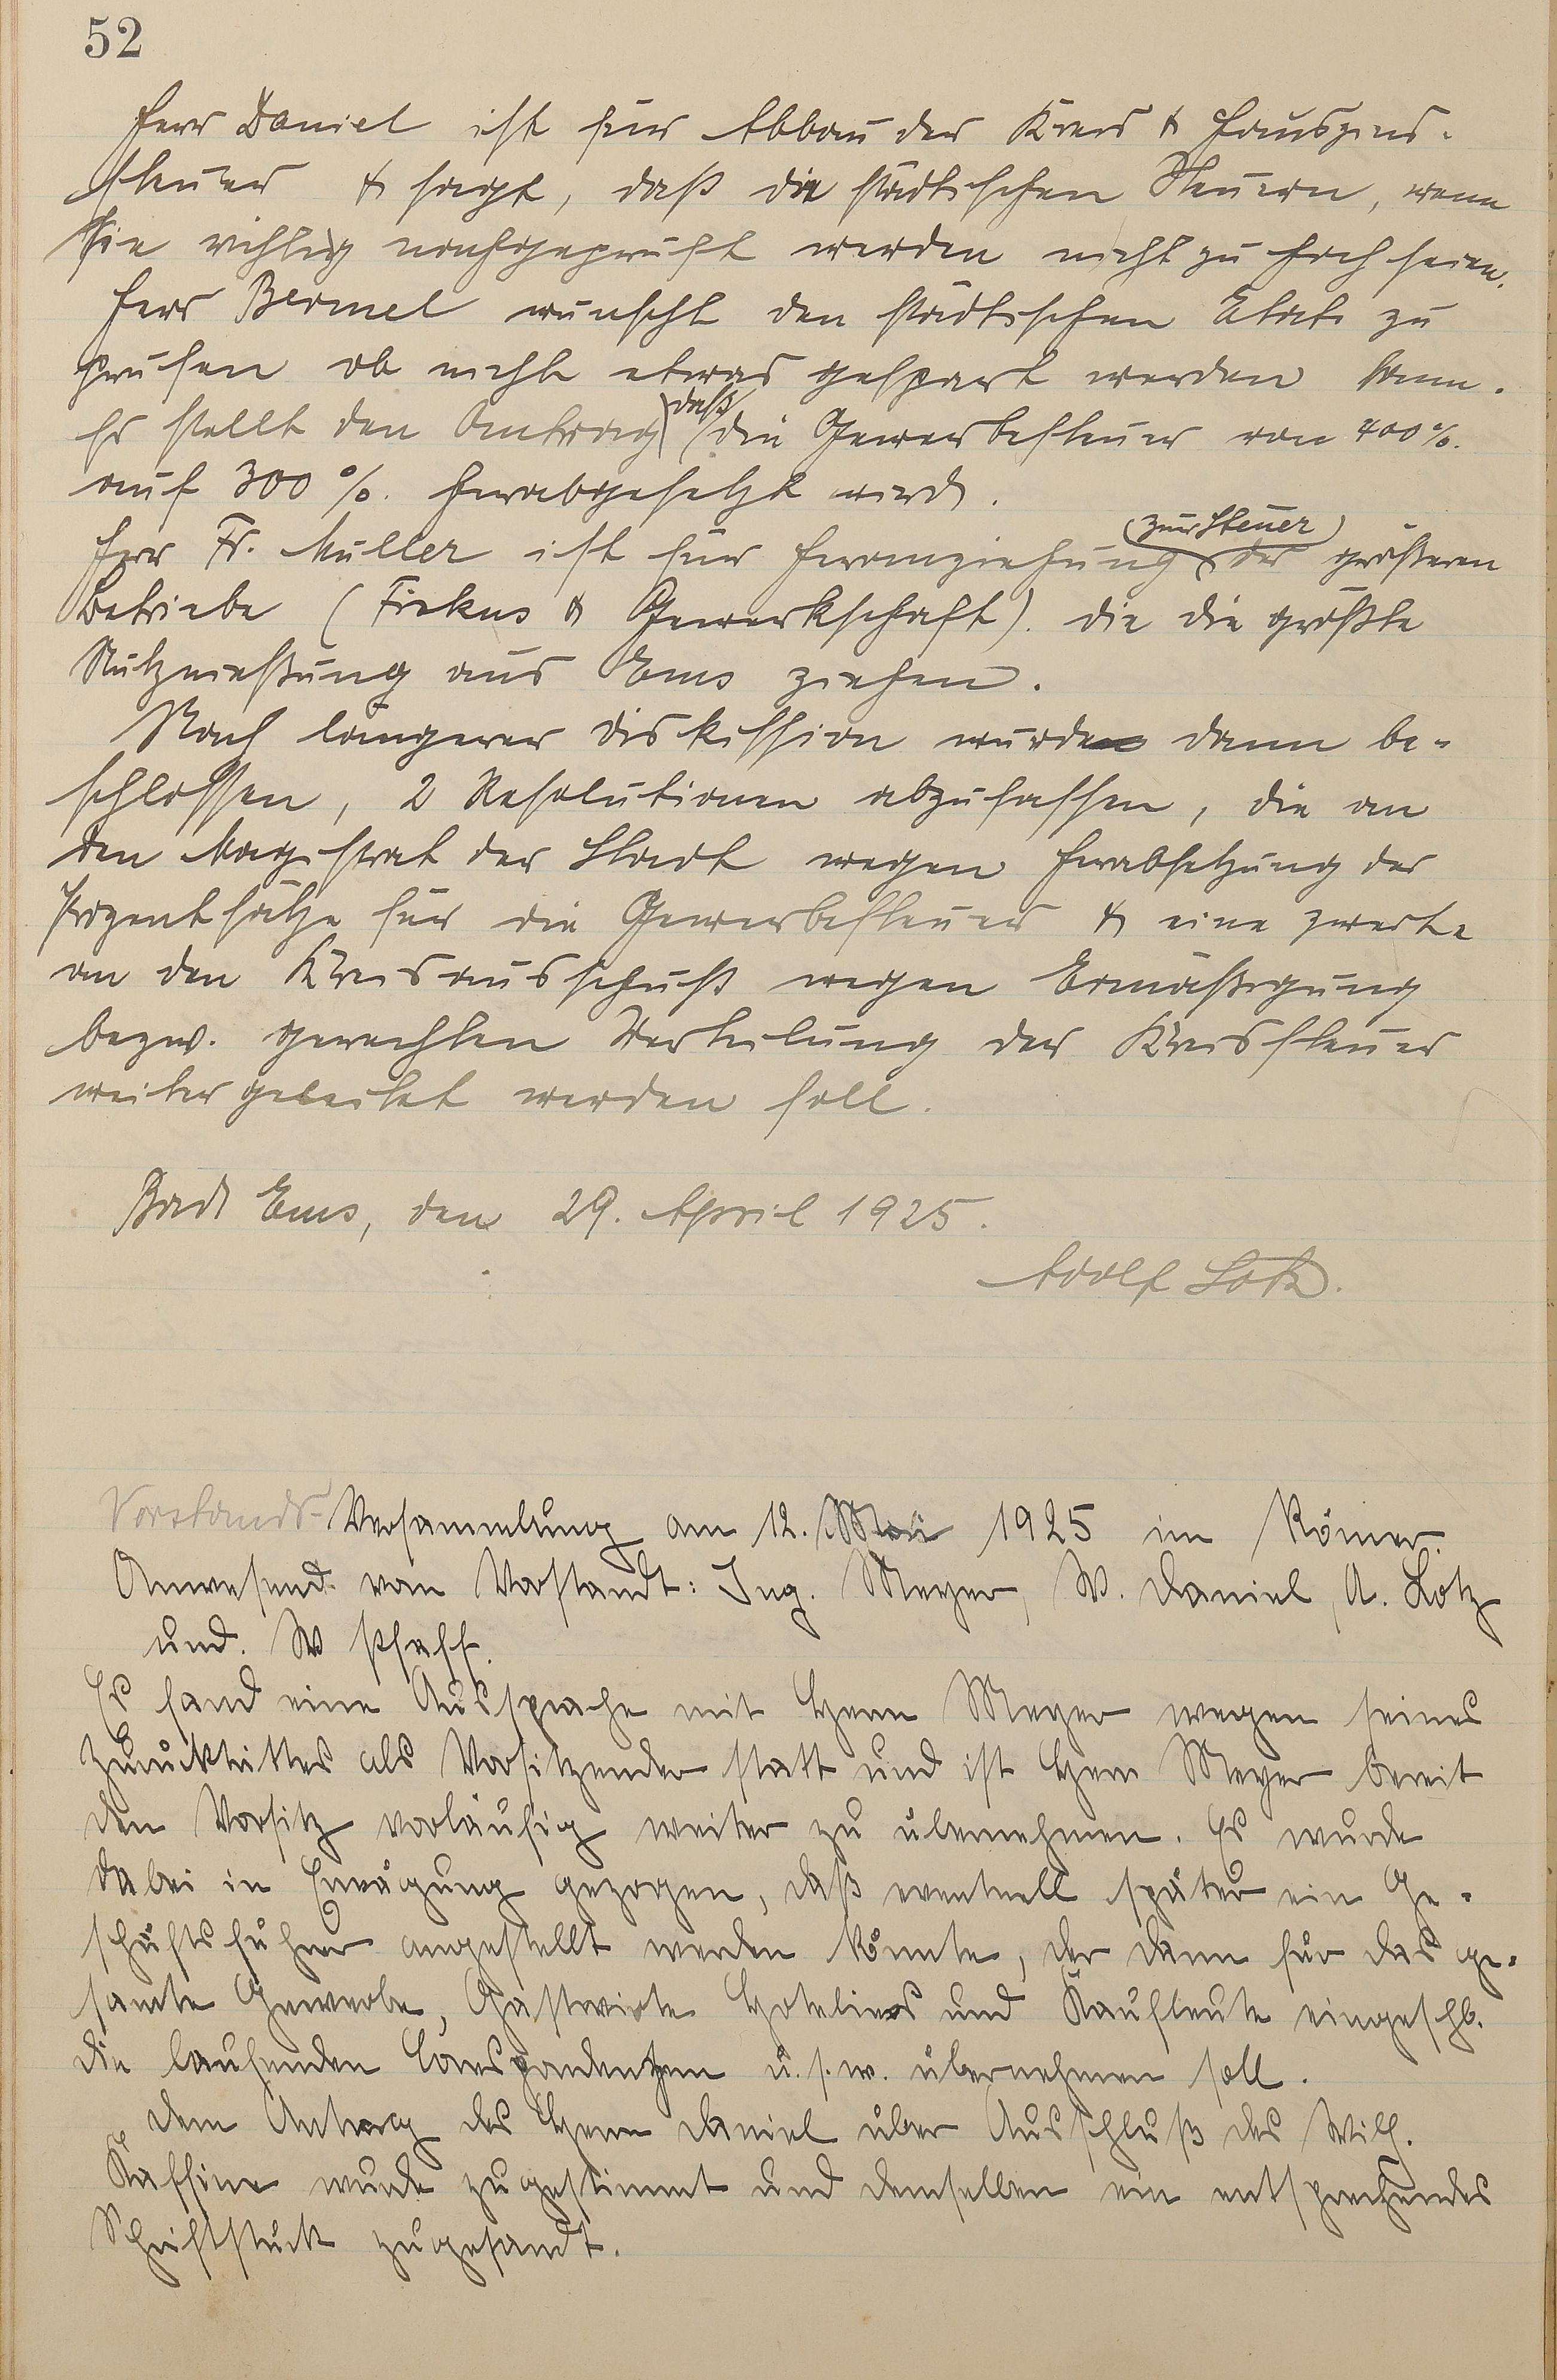 52
Herr Daniel ist für Abbau der Kreis & Hauszins-
steuer & sagt, daß die städtischen Steuern, wenn
sie richtig nachgeprüft werden nicht zu hoch seien.
Herr Bermel wünscht den städtischen Etat zu
prüfen ob nicht etwas gespart werden kann.
Er stellt den Antrag daß die Gewerbesteuer von 400%.
auf 300%. herabgesetzt wird.
Herr Fr. Müller ist für Heranziehung (zur Steuer) der größeren
Betriebe (Fiskus & Gewerkschaft). die die größte
Nutznießung aus Ems ziehen.
Nach längerer Diskission wurde dann be-
schlossen, 2 Resolutionen abzufassen, die an
den Magistrat der Stadt wegen Herabsetzung der
Prozentsätze für die Gewerbesteuer & eine zweite
an den Kreisausschuß wegen Ermäßigung
bezw. gerechten Verteilung der Kreissteuer
weiter geleitet werden soll.
Bad Ems, den 29. April 1925.
Adolf Lotz.
Vorstands-Versammlung am 12. Mai 1925 im Römer.
Anwesend von Vorstandt: Ing. Meyer, W. Daniel, A. Lotz
und. W Pfaff.
Es fand eine Aussprache mit Herrn Meyer wegen seines
Zurücktrittes als Vorsitzender statt und ist Herr Meyer bereit
den Vorsitz vorläufig weiter zu übernehmen. Es wurde
dabei in Erwägung gezogen, daß eventuell später ein Ge-
schäftsführer angestellt werden könnte, der dann für das ge-
samte Gewerbe, Gastwirte Hoteliers und Kaufleute eingeschl.
die laufenden Correspondentzen u.s.w. übernehmen soll.
Dem Antrag des Herrn Daniel über Ausschluß des Wilh.
Kaffine wurde zugestimmt und demselben ein entsprechendes
Schriftstück zugesandt.